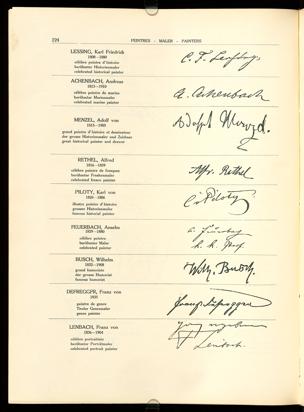 194 PEINTRES - MALER - PAINTERS
LESSING, Karl Friedrich
1808 - 1880
célèbre peintre d'histoire
berühmter Historienmaler
celebrated historical painter
C. F. Lessing
ACHENBACH, Andreas
1815 - 1910
célèbre peintre de marine
berühmter Marinemaler
celebrated marine painter
A. Achenbach
MENZEL, Adolf von
1815 - 1905
grand peintre d'histoire et dessinateur
der grosse Historienmaler und Zeichner
great historical painter and drawer
Adolph Menzel.
RETHEL, Alfred
1816 - 1859
célèbre peintre de fresques
berühmter Freskenmaler
celebrated fresco painter
Alfr. Rethel
PILOTY, Karl von
1826 - 1886
illustre peintre d'histoire
grosser Historienmaler
famous historical painter
C. Piloty
FEUERBACH, Anselm
1829 - 1880
célèbre peintre
berühmter Maler
celebrated painter
BUSCH, Wilhelm
1832 - 1908
grand humoriste
der grosse Humorist
famous humorist
Wilh. Busch.
DEFREGGER, Franz von
1835
peintre de genre
Tiroler Genremaler
genre painter
Franz Defregger
LENBACH, Franz von
1836 - 1904
célèbre portraitiste
berühmter Porträtmaler
celebrated portrait painter
F. Lenbach.